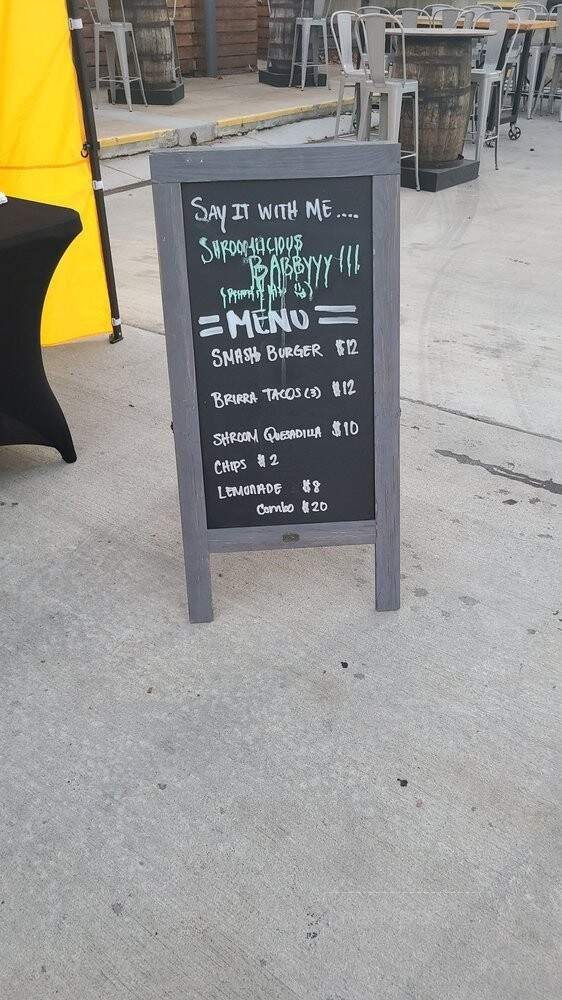 SAY IT WITH ME....
SHROOMALICIOUS
BABBYYY!!!
= MENU =
SMASH BURGER $12
BRIRRA TACOS (3) $12
SHROOM QUESADILLA $10
CHIPS $2
LEMONADE $8
Combo $20